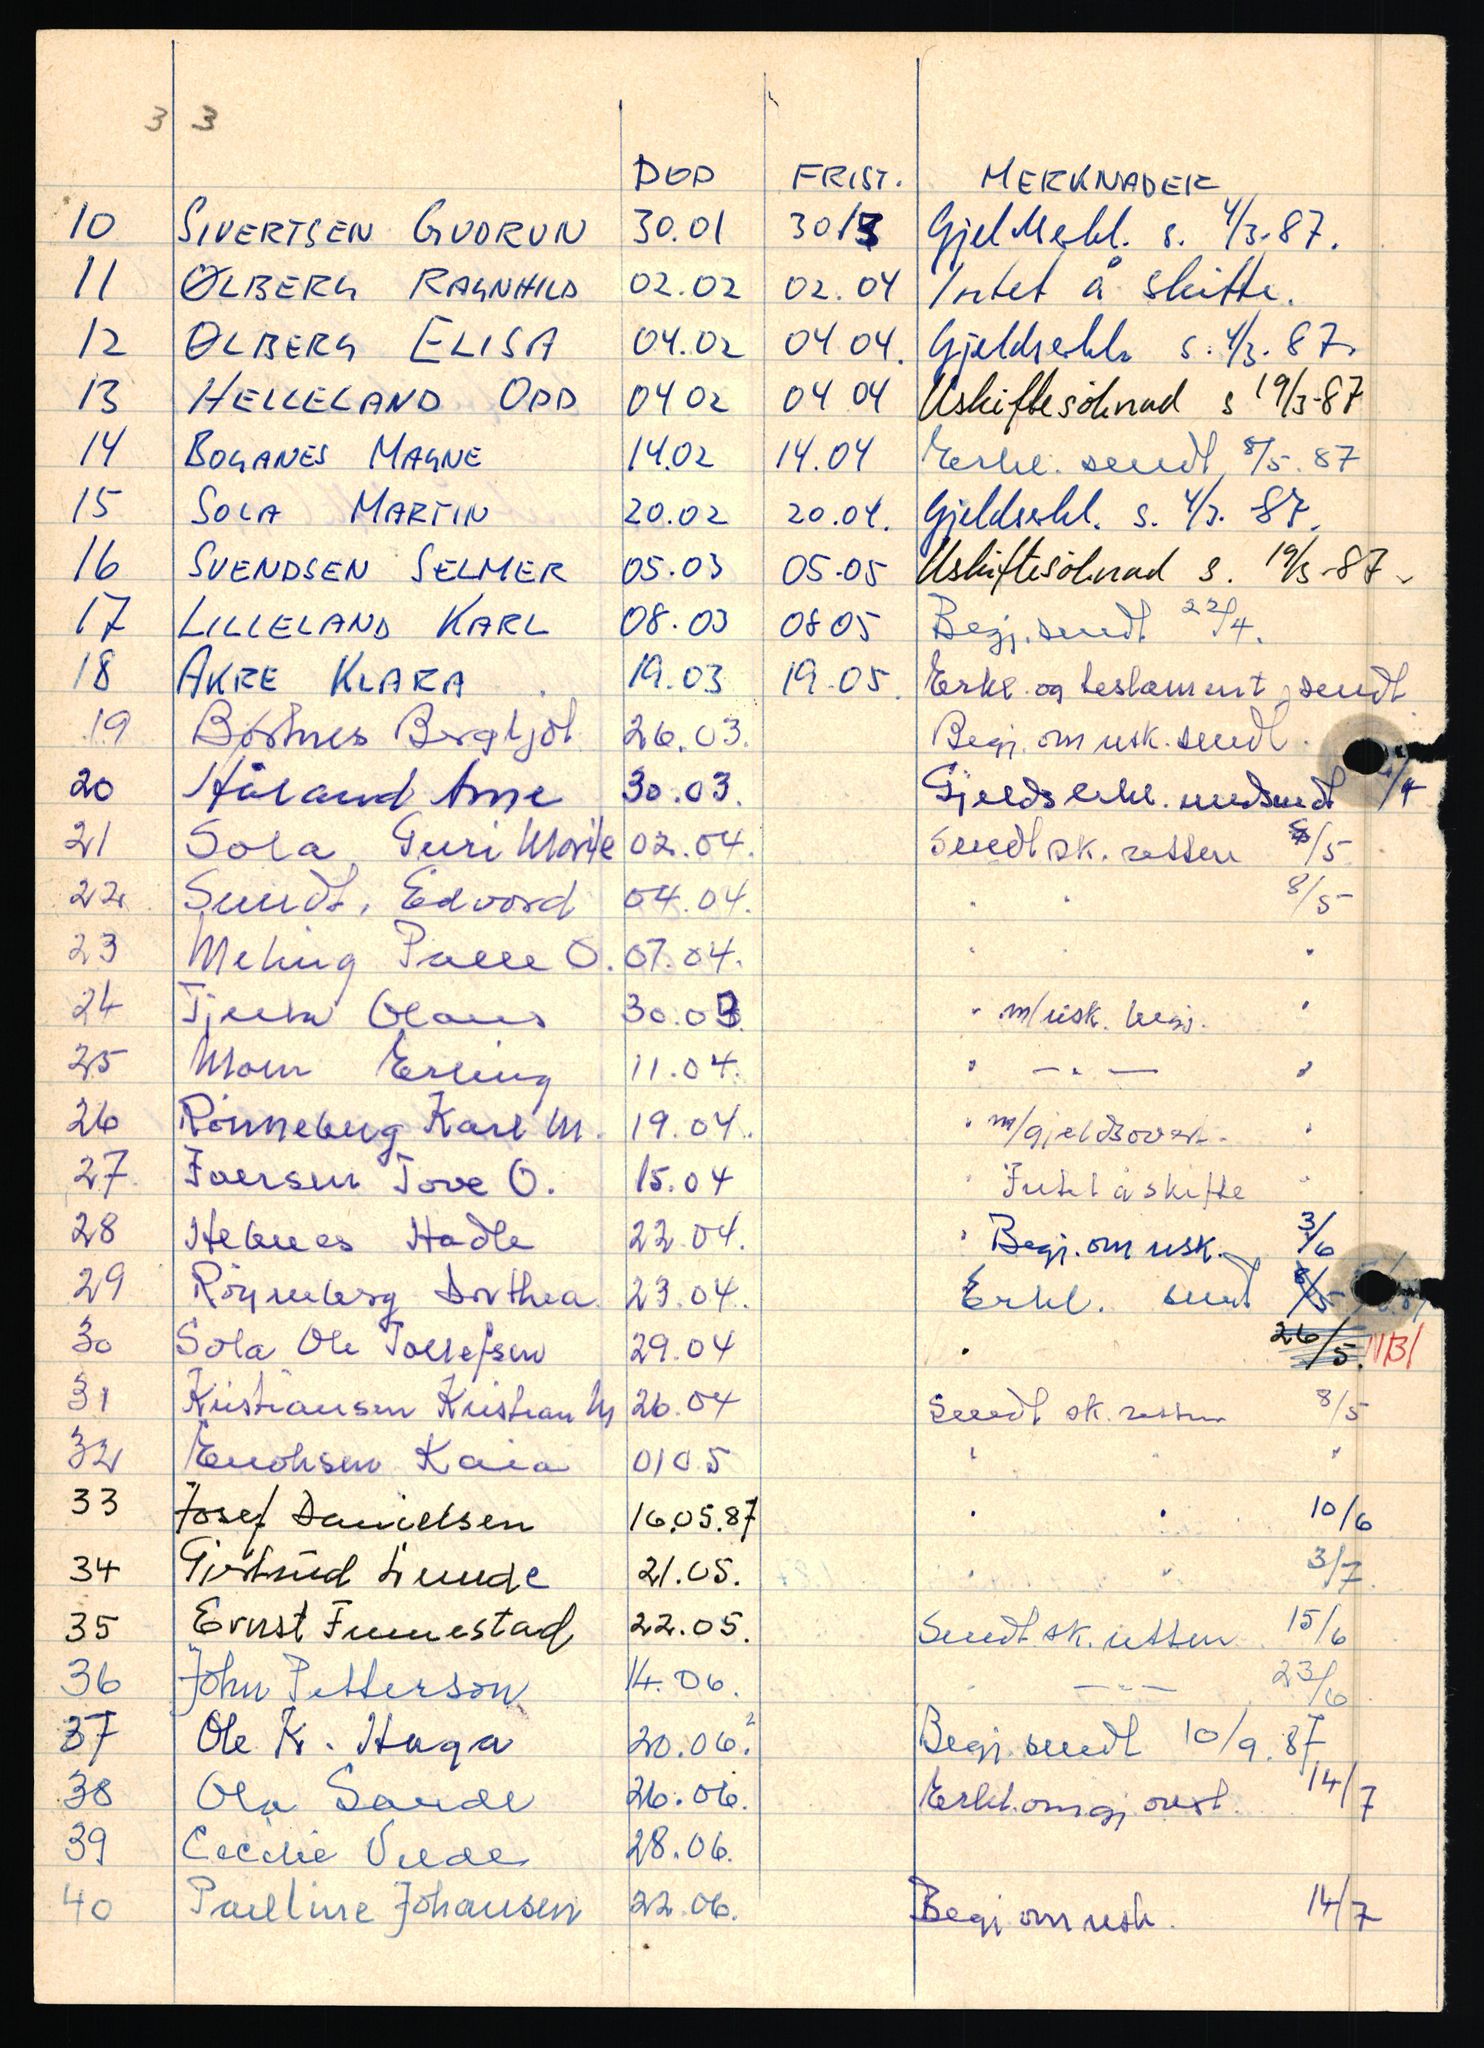 3 3
DØD FRIST. MERKNADER
10 SIVERTSEN GUDRUN 30.01 30/3 Gjeldserkl. s. 4/3-87.
11 ØLBERG RAGNHILD 02.02 02.04 Intet å skifte.
12 ØLBERG ELISA 04.02 04 04. Gjeldserkl. s. 4/3. 87.
13 HELLELAND ODD 04 02 04 04 Uskiftesöknad s 19/3-87
14 BOGANES MAGNE 14.02 14.04 Erkl. sendt 8/5. 87
15 SOLA MARTIN 20.02 20.04. Gjeldserkl. s. 4/3. -87.
16 SVENDSEN SELMER 05.03 05.05 Uskiftesöknad s. 19/3-87.
17 LILLELAND KARL 08.03 08 05 Begj. sendt 22/4.
18 AKRE KLARA 19.03 19.05. Erkl. og testament sendt
19 Børtnes Bergljot 26.03. Begj. om usk. sendt.
20 Håland Arne 30.03. Gjelds erkl. /4
21 Sola Guri Marie 02.04. Sendt sk. retten /5
22 Sundt, Edvard 04.04. " " 8/5
23 Meling Palle O. 07.04. " " "
24 Tjelta Olaus 30.03. " m/usk. begj. "
25 Erling 11.04. " — " — "
26 Rönneberg Karl M. 19.04. " m/gjeldsovert. "
27 Iversen Tove O. 15.04 " Intet å skifte "
28 Helnes Hadle 22.04. " Begj. om usk. 3/6
29 Rönneberg Dorthea 23.04. Erkl. sendt
30 Sola Ole Tollefsen 29.04 " 26/5.
31 Kristiansen Kristian M 26.04 Sendt sk. retten 8/5
32 Enoksen Kaia 01 05 " " "
33 Josef Danielsen 16.05.87 " " 10/6
34 Gjertrud Lunde 21.05. " " 3/7.
35 Ernst Finnestad 22.05. Sendt sk. retten 15/6
36 John Petterson 14.06. " — " — 23/6
37 Ole K. Haga 20.06. Begj. sendt 10/9. 87
38 Ola Sande 26.06. Erkl. om gj. overt. 14/7
39 Cecilie 28.06.
40 Pauline Johansen 22.06. Begj. om usk. 14/7